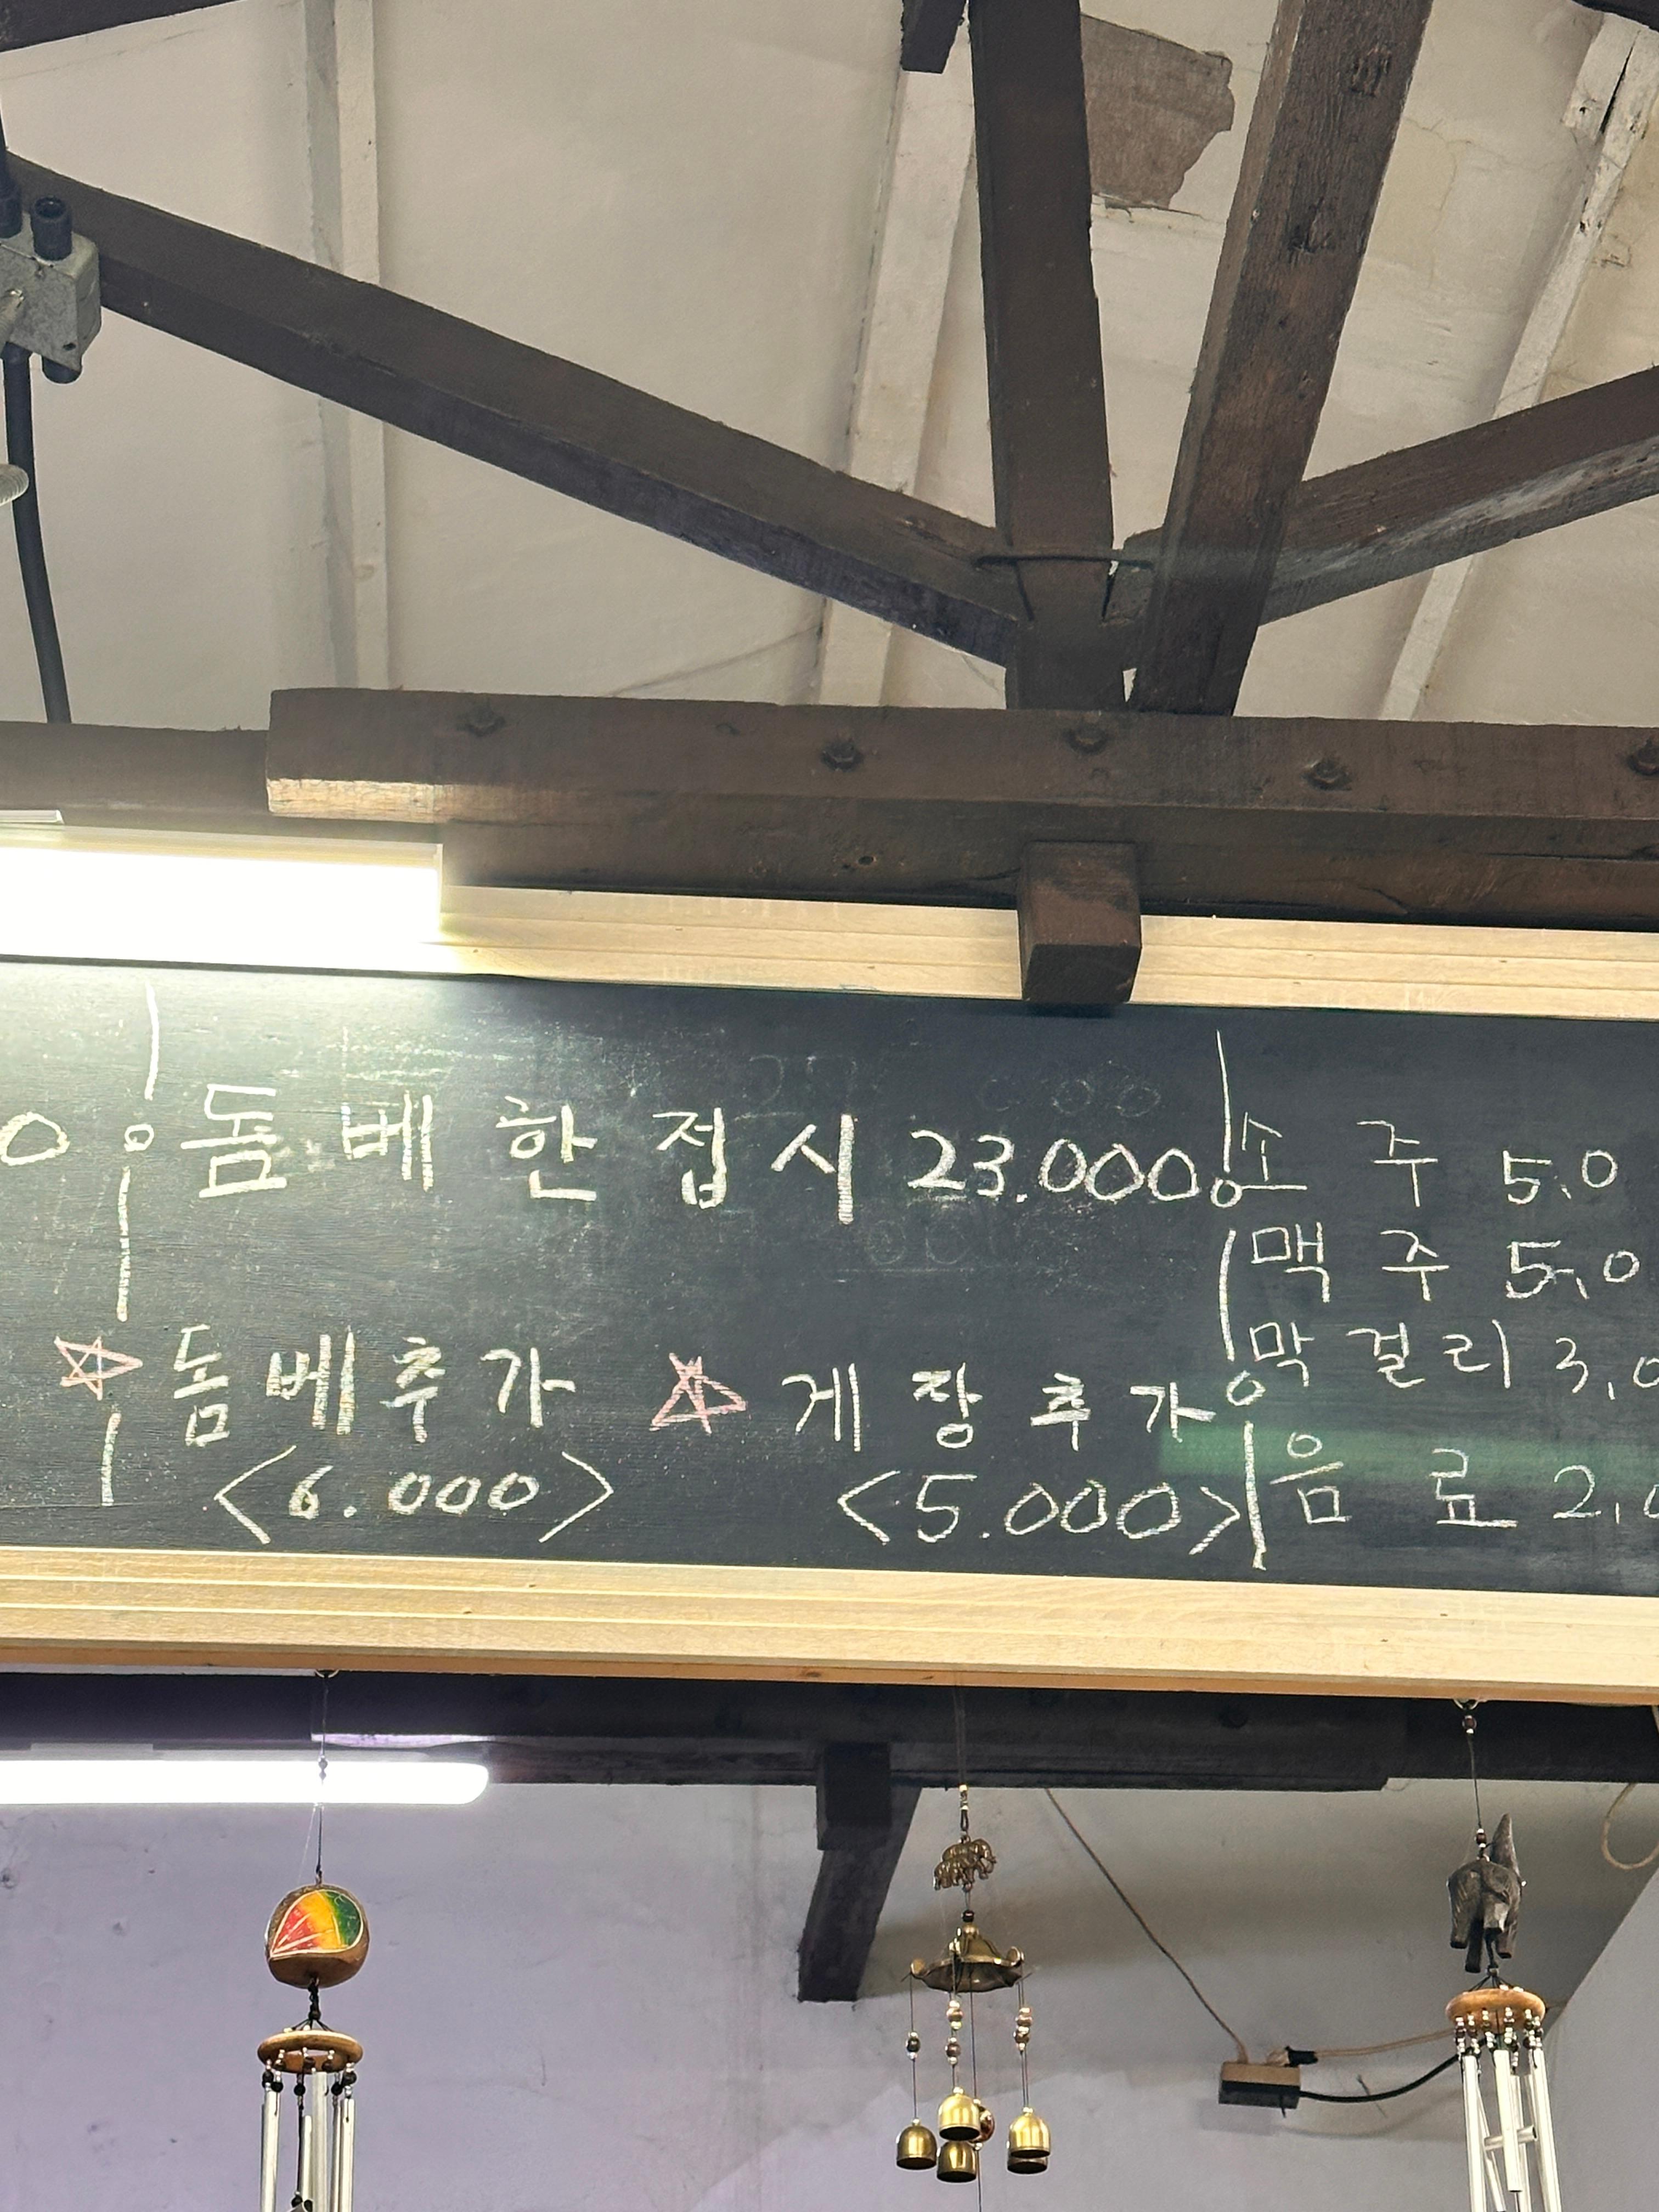 0
돔베한접시 23.000
☆ 돔베추가
<6.000>
☆ 게장추가
<5.000>
소 주 5,0
맥 주 5,0
막걸리 3,0
음 료 2,0